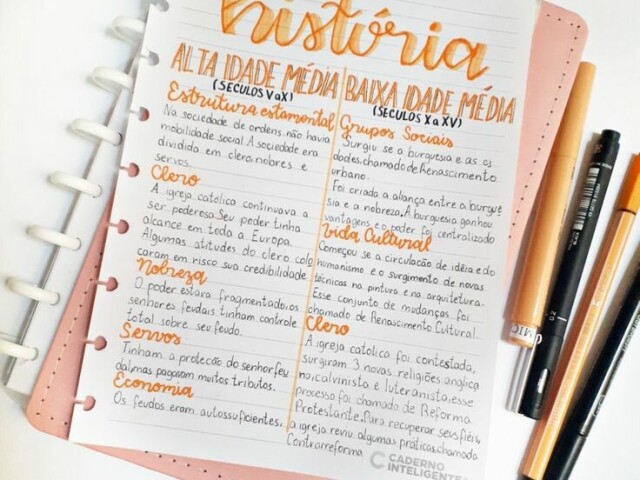 história
ALTA IDADE MÉDIA
(SECULOS V a X)
Estrutura estamental
Na sociedade de ordens, não havia
mobilidade social. A sociedade era
dividida em clero, nobres e
servos.
Clero
A igreja catolica continuava a
ser poderosa. Seu poder tinha
alcance em toda a Europa.
Algumas atitudes do clero colo
caram em risco sua credibilidade
Nobreza
O poder estava fragmentado, os
senhores feudais tinham controle
total sobre seu feudo.
Servos
Tinham a protecção do senhor feu
dal, mas pagavam muitos tributos.
Economia
Os feudos eram autossuficientes,
BAIXA IDADE MÉDIA
(SECULOS X a XV)
Grupos Sociais
Surgiu se a burguesia e as ci
dades, chamado de Renascimento
urbano.
Foi criada a aliança entre a burgue
sia e a nobreza. A burguesia ganhou
vantagens e o poder foi centralizado
Vida Cultural
Começou se a circulação de idéia e do
humanismo e o surgimento de novas
técnicas na pintura e na arquitetura.
Esse conjunto de mudanças foi
chamado de Renascimento Cultural.
Clero
A igreja catolica foi contestada,
surgiram 3 novas religiões: anglica
na, calvinista e luteranista, esse
processo foi chamado de Reforma
Protestante. Para recuperar seus fiéis,
a igreja reviu algumas práticas, chamado
Contrarreforma
CADERNO
INTELIGENTE